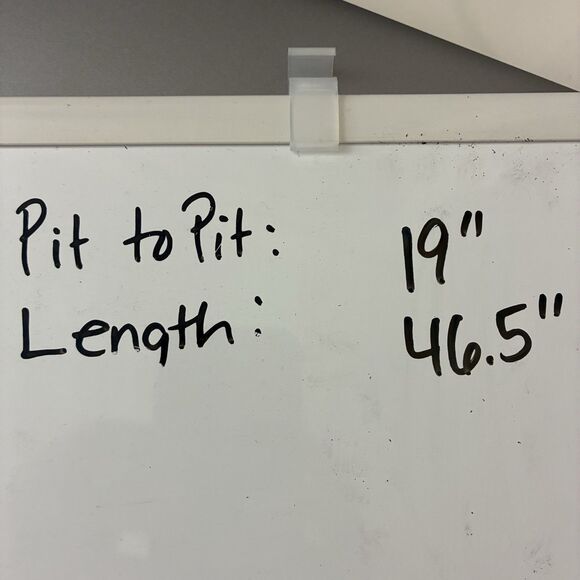 Pit to Pit: 19"
Length: 46.5"